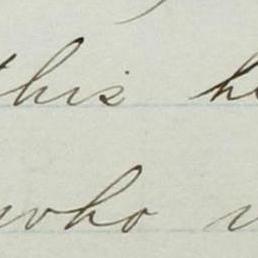 this
who